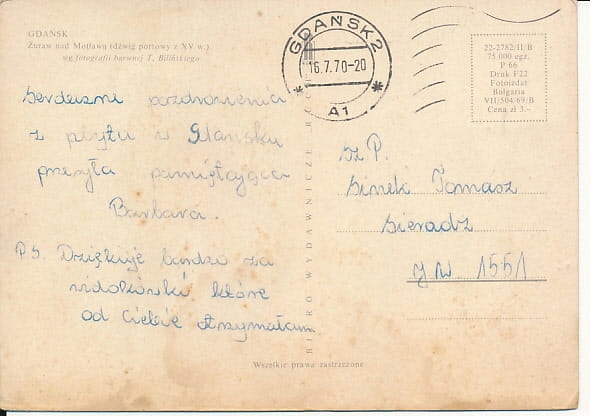 GDAŃSK
Żuraw nad Motławą (dźwig portowy z XV w.)
wg fotografii barwnej T. Bilińskiego
GDAŃSK 2
16.7.70-20
A1
22-2782/II/B
75 000 egz.
P 66
Druk F22
Fotoizdat
Bołgaria
VII/504/69/B
Cena zł 3.—
Serdeczne pozdrowienia
z pobytu w Gdańsku
przesyła pamiętająca
Barbara.
P.S. Dziękuje bardzo za
widokówki które
od Ciebie otrzymałam.
BIURO WYDAWNICZE RUCH
Sz P.
Sinek Tomasz
Sieradz
J.W. 1551
Wszelkie prawa zastrzeżone